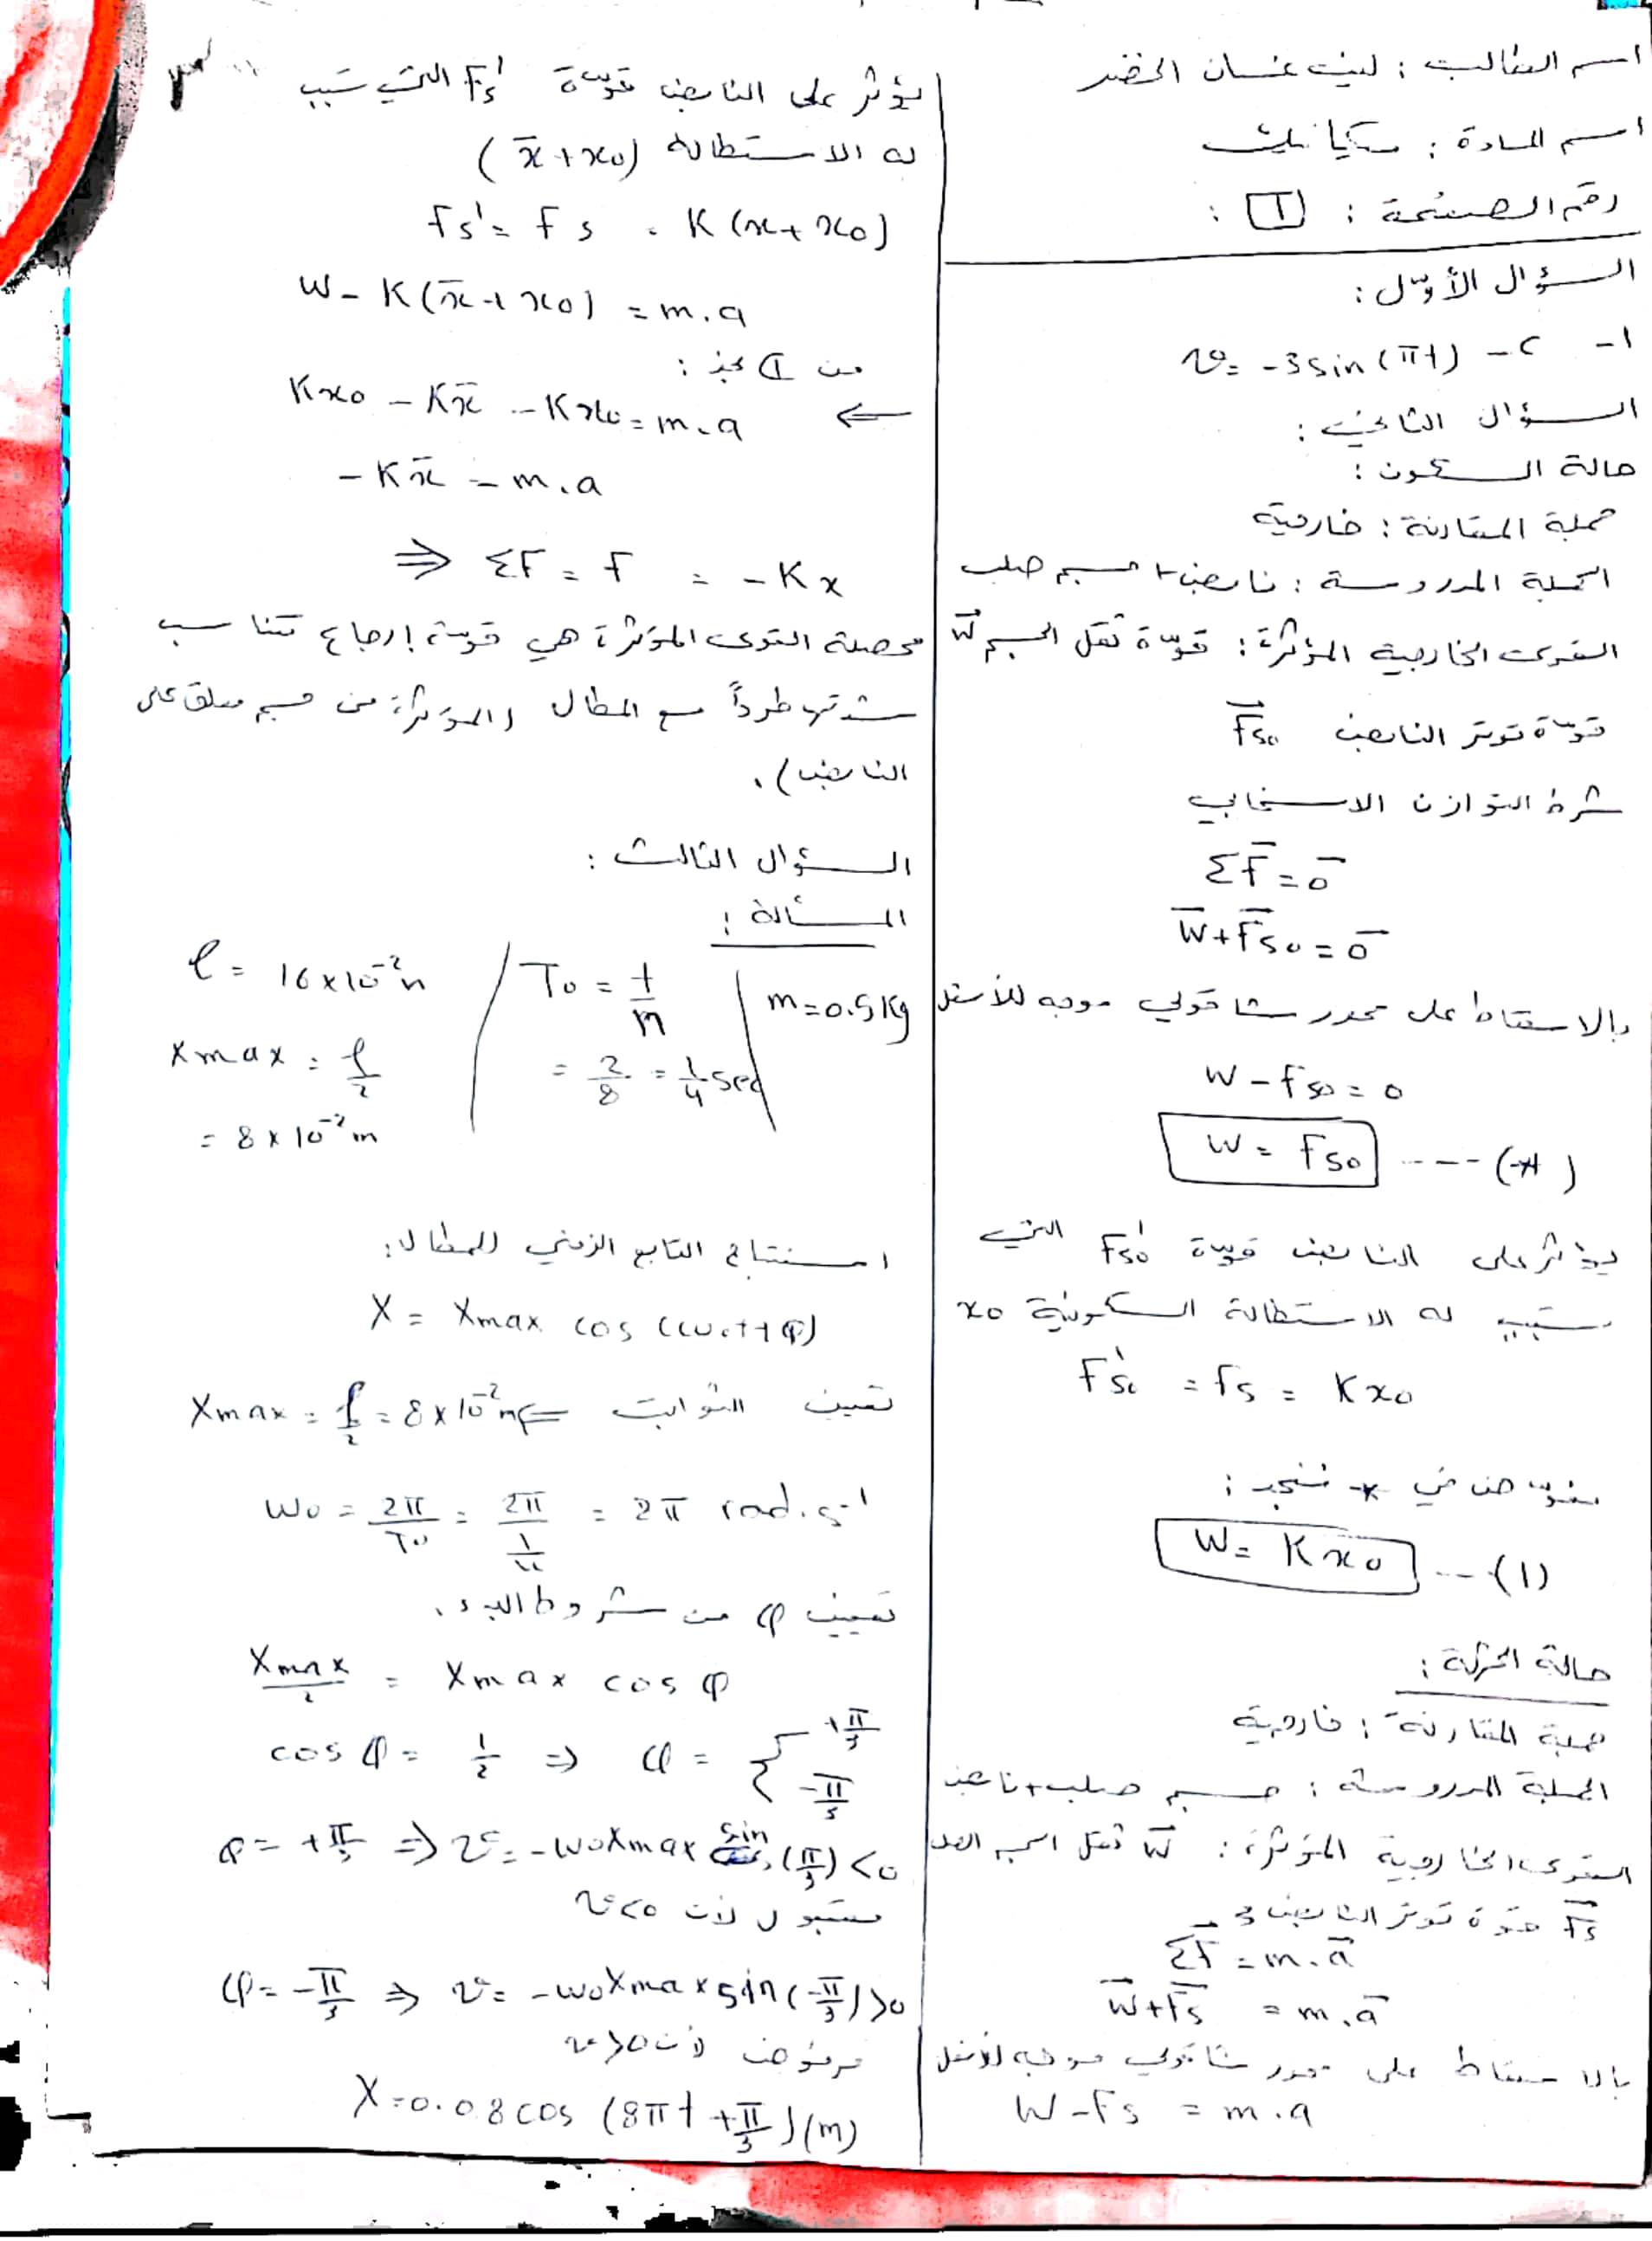 اسم الطالب : ليث غسان الخضر
اسم المادة : ميكانيك
رقم الصفحة : 1 :
السؤال الأول :
1- c - v = -3 sin(πt)
السؤال الثاني :
حالة السكون :
جملة المقارنة : خارجية
الجملة المدروسة : نابض + جسم صلب
القوى الخارجية المؤثرة : قوة ثقل الجسم W
قوة توتر النابض Fs0
شرط التوازن الانسحابي
ΣF = 0
W + Fs0 = 0
بالاسقاط على محور شاقولي موجه للأسفل
W - Fs0 = 0
W = Fs0 ---- (*)
يؤثر على النابض قوة F's0 التي
تسبب له الاستطالة السكونية x0
F's0 = Fs = Kx0
نعوض في * فنجد :
W = Kx0 --- (1)
حالة الحركة :
جملة المقارنة : خارجية
الجملة المدروسة : جسم صلب + نابض
القوى الخارجية المؤثرة : W ثقل الجسم الصلب
Fs قوة توتر النابض
ΣF = m.a
W + Fs = m.a
بالاسقاط على محور شاقولي موجه للأسفل
W - Fs = m.a
يؤثر على النابض قوة F's التي تسبب
له الاستطالة (x + x0)
Fs' = Fs = K(x + x0)
W - K(x + x0) = m.a
من 1 نجد :
Kx0 - Kx - Kx0 = m.a ⇐
-Kx = m.a
⇒ ΣF = F = -Kx
محصلة القوى المؤثرة هي قوة إرجاع تتناسب
شدتها طرداً مع المطال (المؤثرة من جسم معلق على
النابض) .
السؤال الثالث :
المسألة :
m = 0.5 Kg | T0 = t/n = 2/8 = 1/4 sec / ℓ = 16 × 10⁻² m
Xmax = ℓ/2
= 8 × 10⁻² m
استنتاج التابع الزمني للمطال :
X = Xmax cos(ω0t + φ)
تعيين الثوابت ⇐ Xmax = ℓ/2 = 8 × 10⁻² m
ω0 = 2π/T0 = 2π/(1/4) = 8π rad.s⁻¹
تعيين φ من شروط البدء .
Xmax/2 = Xmax cos φ
cos φ = 1/2 ⇒ φ = { +π/3
-π/3
φ = +π/3 ⇒ v = -ω0Xmax sin(π/3) < 0
مقبول لأن v < 0
φ = -π/3 ⇒ v = -ω0Xmax sin(-π/3) > 0
مرفوض لأن v > 0
X = 0.08 cos(8πt + π/3) (m)